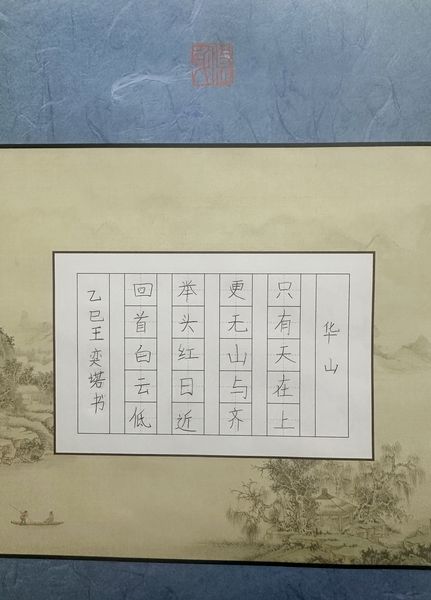 华山
只有天在上
更无山与齐
举头红日近
回首白云低
乙巳王奕塔书